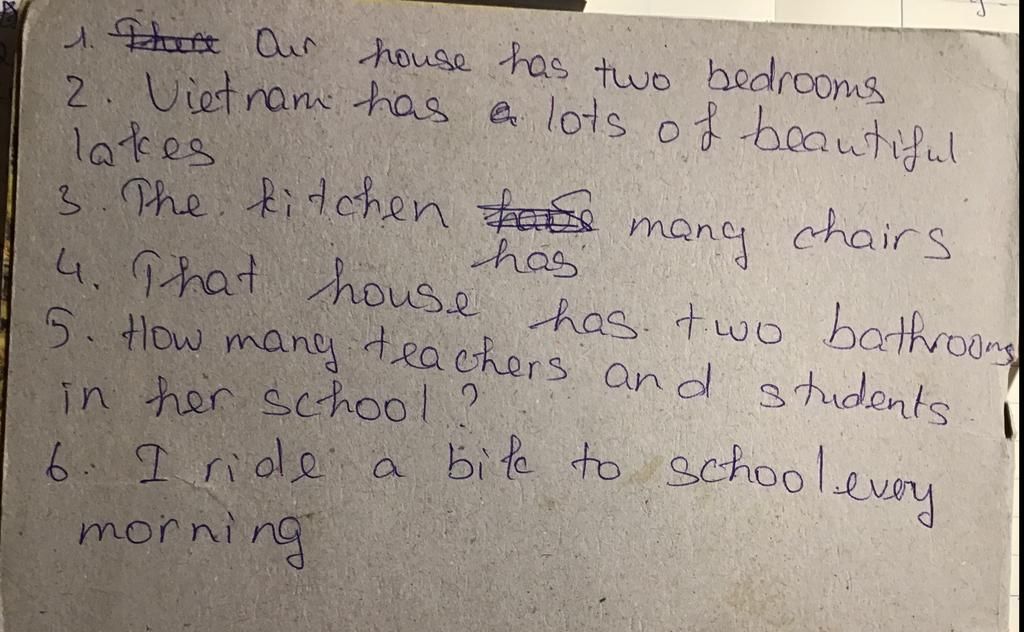 1. Our house has two bedrooms
2. Vietnam has a lots of beautiful
lakes
3. The kitchen has many chairs
4. That house has two bathrooms
5. How many teachers and students
in her school?
6. I ride a bike to school every
morning